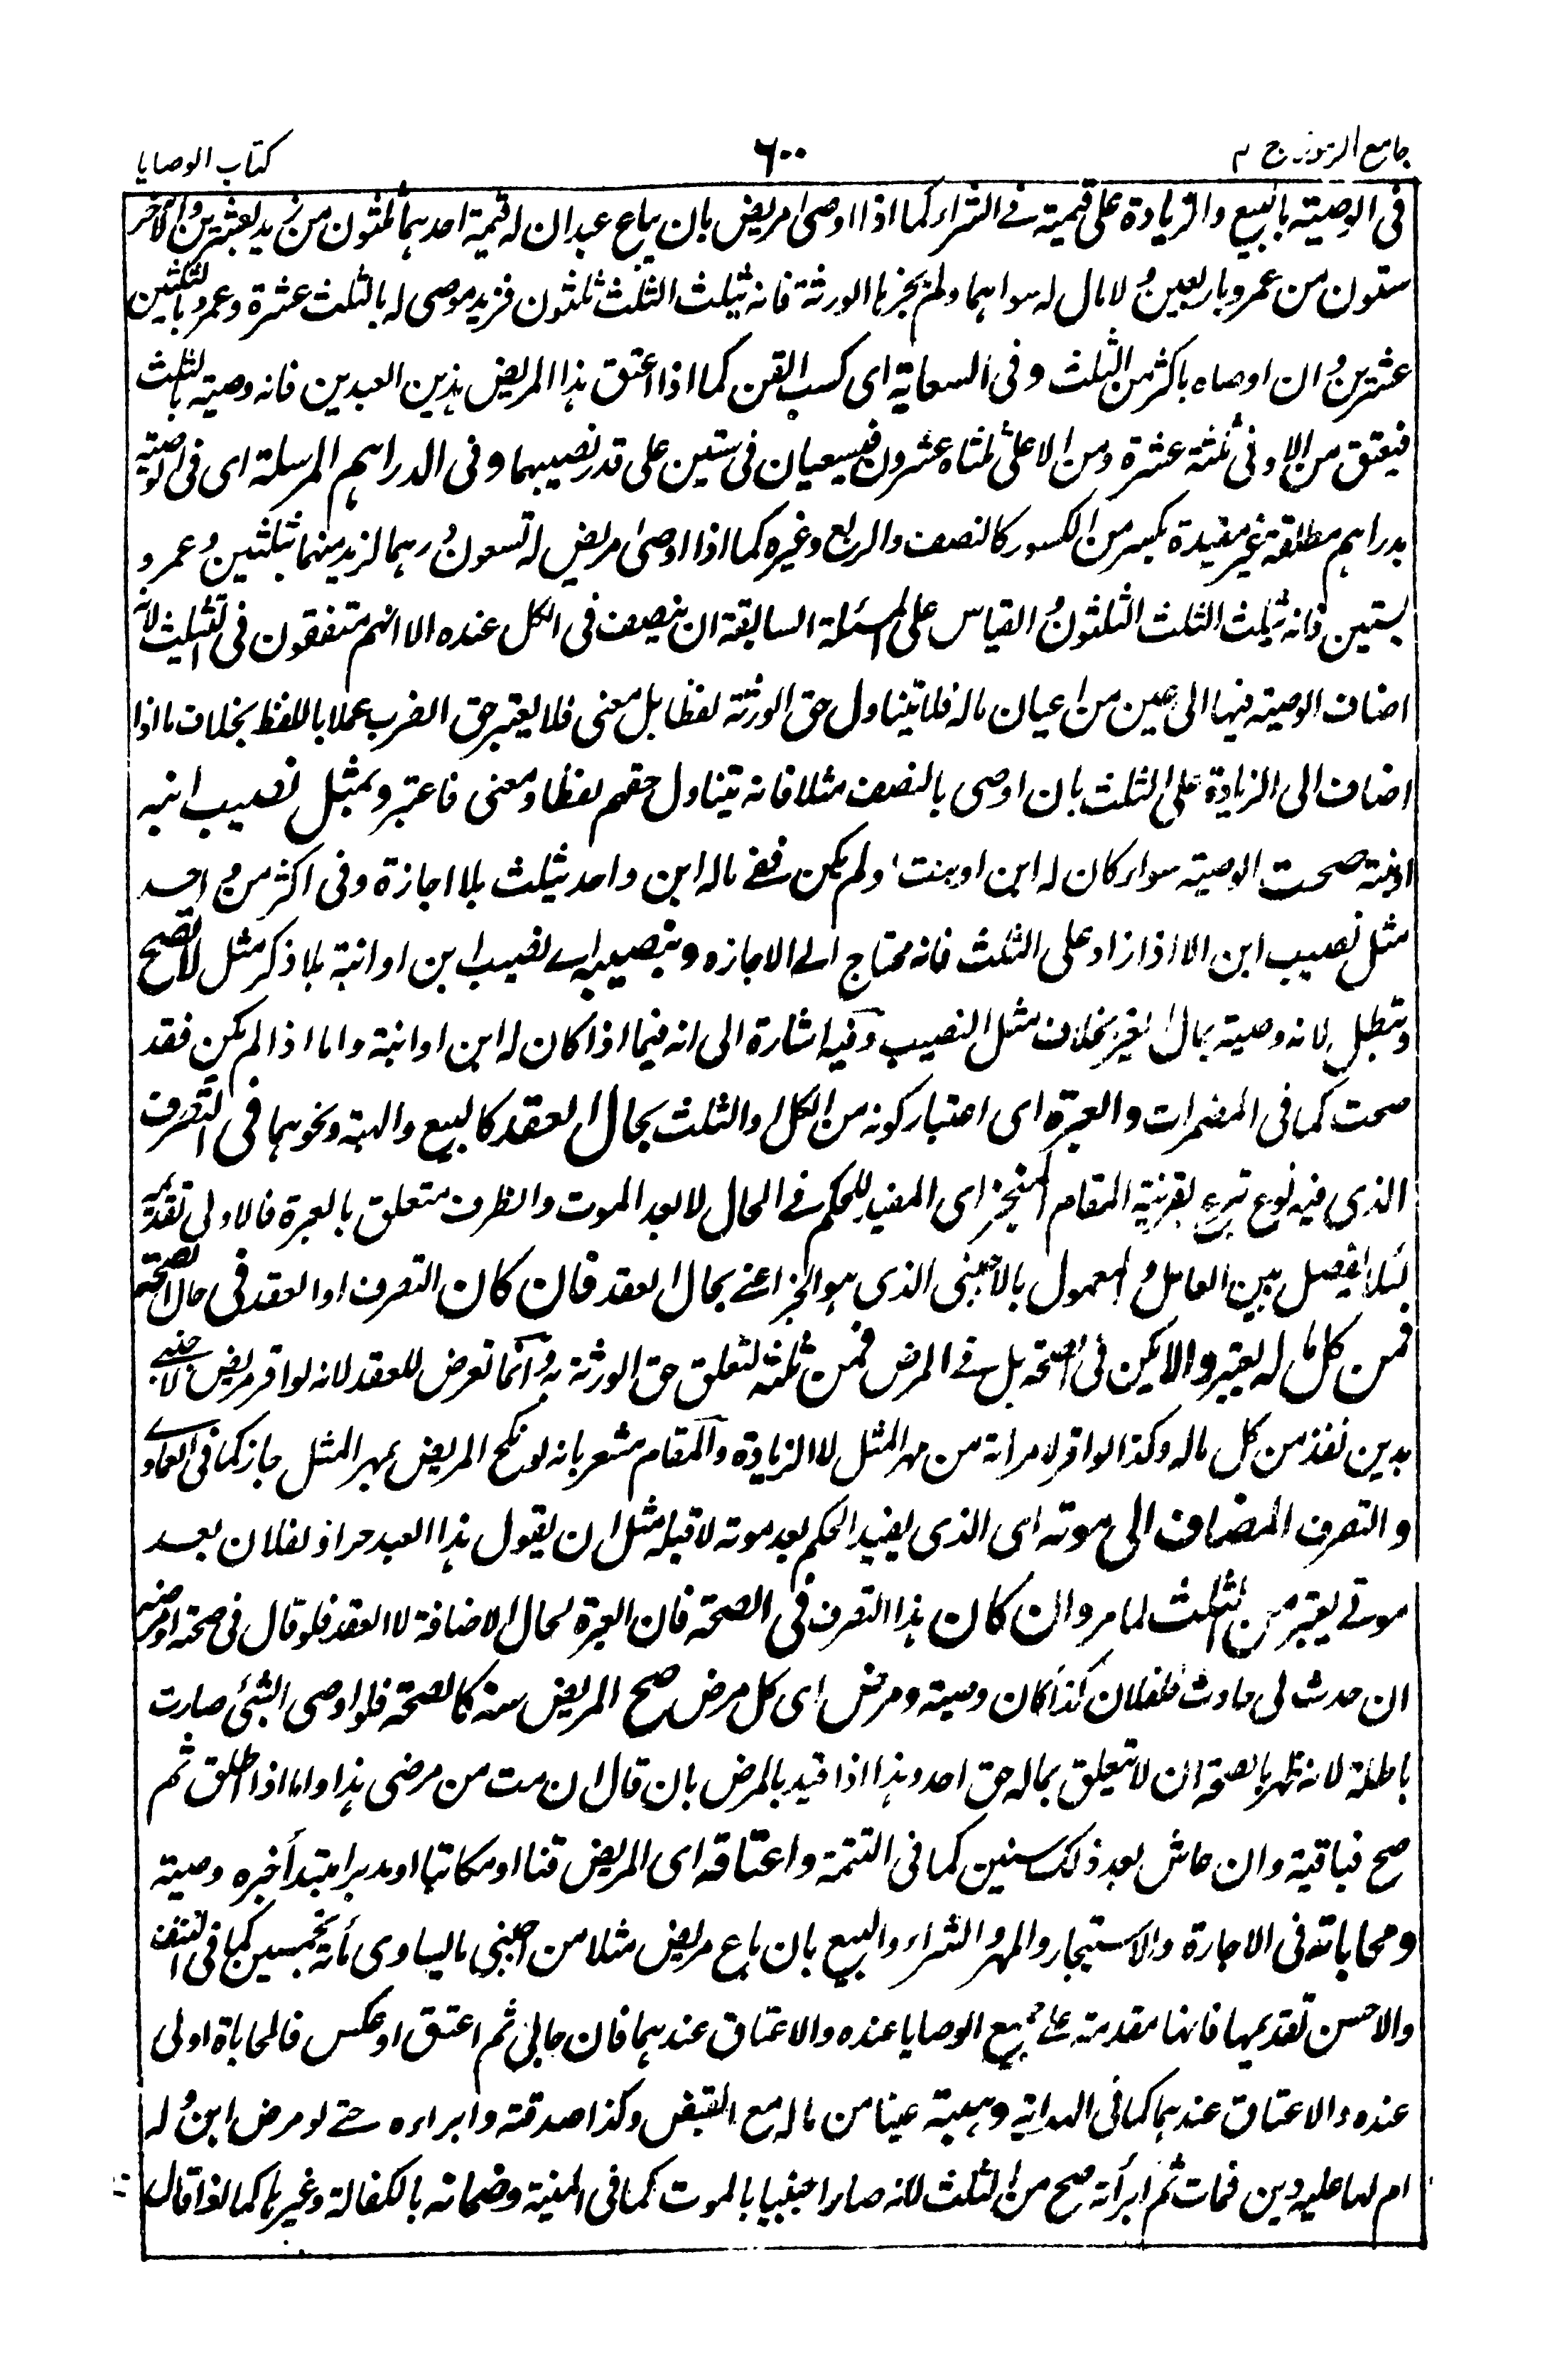 جامع الرموز ج ٢
٦٠٠
كتاب الوصايا
فى الوصية بالبيع والزيادة على قيمية فے الشراء كما اذا اوصى مريض بان يباع عبدان له قيمة احدهما ثلثون من زيد بعشرين والآخر
ستون من عمرو باربعين ولا مال له سواهما ولم يجزها الورثة فانه يثلث الثلث ثلثون فزيد موصى له بالثلث عشرة وعمرو بالثلثين
عشرين وان اوصاه باكثر من الثلث و فى السعاية اى كسب القن كما اذا اعتق هذا المريض هذين العبدين فانه وصية بالثلث
فيعتق من الاوفى ثلثه عشرة ومن الاعلى ثلثاه عشرون فيسعيان فى ستين على قدر نصيبهما و فى الدراهم المرسلة اى فى الوصية
بدراهم مطلقة غير مقيدة بكسر من الكسور كالنصف والربع وغيره كما اذا اوصى مريض له تسعون درهما لزيد منهما بثلثين و عمرو
بستين فانه يثلث الثلث الثلثون و القياس على المسئلة السابقة ان ينصف فى الكل عنده الا انهم متفقون فى التثليث لانه
اضاف الوصية فيها الى عين من اعيان ماله فلا يتناول حق الورثة لفظا بل معنى فلا يعتبر حق الضرب عملا باللفظ بخلاف ما اذا
اضاف الى الزيادة على الثلث بان اوصى بالنصف مثلا فانه يتناول حقهم لفظا ومعنى فاعتبر وبمثل نصيب ابنه
او بنته صحت الوصية سواء كان له ابن او بنت او لم يكن ففے ماله ابن واحد يثلث بلا اجازة وفى اكثر من واحد
مثل نصيب ابن الا اذا زاد على الثلث فانه محتاج الے الاجازه و بنصيبه اے نصيب ابن او ابنة بلا ذكر مثل لا تصح
وتبطل لانه وصية بمال الغير بخلاف مثل النصيب وفيه اشارة الى انه فيما اذا كان له ابن او ابنة واما اذا لم يكن فقد
صحت كما فى المضمرات والعبرة اى اعتبار كونه من الكل او الثلث بحال العقد كالبيع والهبة ونحوهما فى التصرف
الذى فيه نوع تبرع بقرينة المقام المنجز اى المفيد للحكم فے الحال لا بعد الموت والظرف متعلق بالعبرة فالاولى تقديمه
لئلا يفصل بين العامل و المعمول بالاجنبى الذى هو الخبر اعنے بحال العقد فان كان التصرف او العقد فى حال الصحة
فمن كل ماله يعتبر والا يكن فى الصحة بل فے المرض فمن ثلثه لتعلق حق الورثة به وانما تعرض للعقد لانه لو اقر مريض لاجنبے
بدين نفذ من كل ماله وكذا لو اقر لامرأته من مهر المثل لا الزيادة والمقام مشعر بانه لو نكح المريض بمهر المثل جاز كما فى العمادے
و التصرف المضاف الى موته اى الذى يفيد الحكم بعد موته لا قبله مثل ان يقول هذا العبد حر او لفلان بعد
موتے يعتبر من الثلث لما مر وان كان هذا التصرف فى الصحة فان العبرة لحال الاضافة لا العقد فلو قال فى صحته او مرضه
ان حدث لى حادث فلفلان كذا كان وصية ومرض اى كل مرض صح المريض منه كالصحة فلو اوصى الشئ صارت
باطلة لانه ظهر بالصحة ان لا تعلق بماله حق احد وهذا اذا قيد بالمرض بان قال ان مت من مرضى هذا واما اذا اطلق ثم
صح فباقية وان عاش بعد ذلك سنين كما فى التتمة واعتاقه اى المريض قنا او مكاتبا او مدبرا مبتدأ خبره وصية
ومحاباته فى الاجارة والاستيجار والمهر والشراء والبيع بان باع مريض مثلا من اجنبى ما يساوى مأة بخمسين كما فى النتف
والاحسن تقديمها فانها مقدمة علے جميع الوصايا عنده والاعتاق عندهما فان حابى ثم اعتق او عكس فالمحاباة اولى
عنده والاعتاق عندهما كما فى الهداية وهبته عينا من ماله مع القبض وكذا صدقته وابراءه حتے لو مرض ابن و له
ام لها عليه دين فمات ثم ابرأته صح من الثلث لانه صار اجنبيا بالموت كما فى المنية وضمانه بالكفالة وغيرها كما لو قال